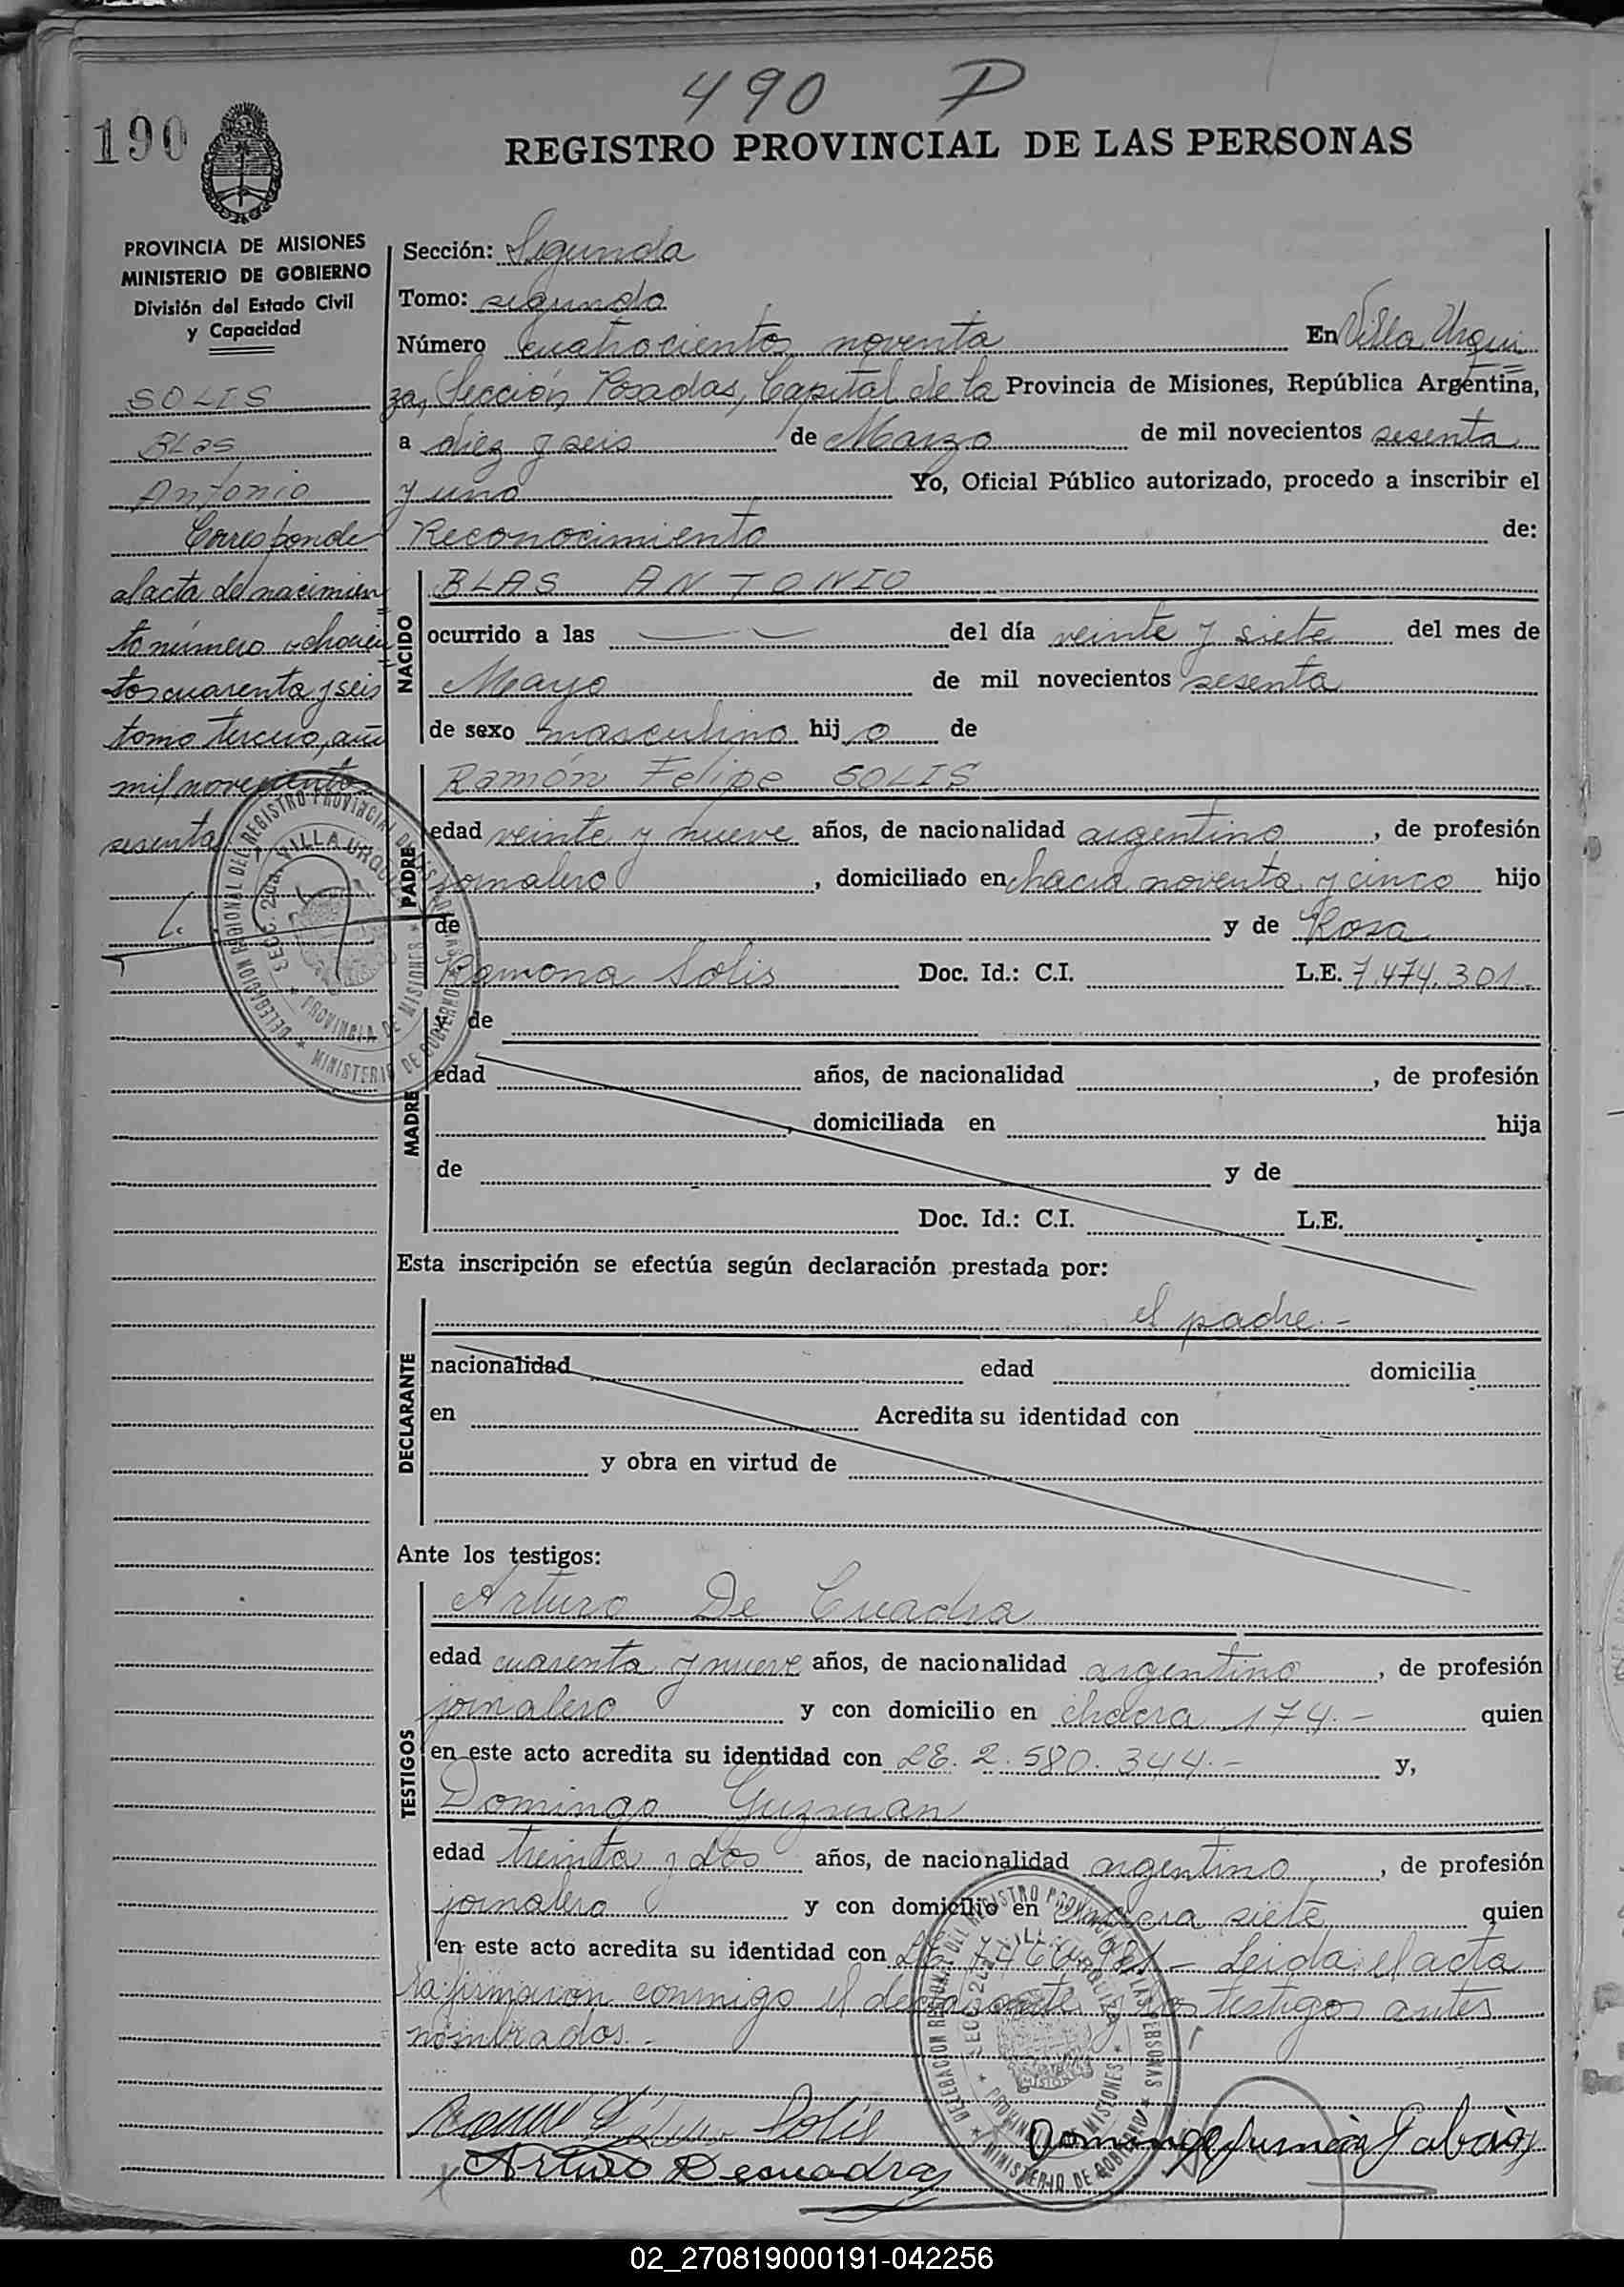 490 P
190
REGISTRO PROVINCIAL DE LAS PERSONAS
PROVINCIA DE MISIONES
MINISTERIO DE GOBIERNO
División del Estado Civil
y Capacidad
SOLIS
BLas
Antonio
Corresponde
al acta de nacimien
to número ochocien
tos cuarenta y seis
tomo tercero, año
mil novecientos
sesenta
Sección: Segunda
Tomo: segundo
Número cuatrociento noventa En Villa Urqui
za, Sección Posadas, Capital de la Provincia de Misiones, República Argentina,
a diez y seis de Marzo de mil novecientos sesenta
y uno Yo, Oficial Público autorizado, procedo a inscribir el
Reconocimiento de:
NACIDO
BLAS ANTONIO
ocurrido a las del día veinte y siete del mes de
Mayo de mil novecientos sesenta
de sexo masculino hijo de
PADRE
Ramón Felipe SOLIS
edad veinte y nueve años, de nacionalidad argentino, de profesión
jornalero, domiciliado en chacra noventa y cinco hijo
de y de Rosa
Ramona Solis Doc. Id.: C.I. L.E. 7.474.301.-
MADRE
y de
edad años, de nacionalidad , de profesión
domiciliada en hija
de y de
Doc. Id.: C.I. L.E.
Esta inscripción se efectúa según declaración prestada por:
DECLARANTE
el padre.-
nacionalidad edad domicilia
en Acredita su identidad con
y obra en virtud de
Ante los testigos:
TESTIGOS
Arturo De Cuadra
edad cuarenta y nueve años, de nacionalidad argentino, de profesión
jornalero y con domicilio en chacra 174.- quien
en este acto acredita su identidad con LE. 2.580.344.- y,
Domingo Guzman
edad treinta y dos años, de nacionalidad argentino, de profesión
jornalero y con domicilio en chacra siete quien
en este acto acredita su identidad con LE - Leida el acta
la firmaron conmigo el declarante y los testigos antes
nombrados.-
DELEGACION REGIONAL DEL REGISTRO PROVINCIAL DE LAS PERSONAS
SECC. 2da. VILLA URQUIZA
PROVINCIA DE MISIONES
MINISTERIO DE GOBIERNO
Solis
Arturo Decuadra
Domingo
02_270819000191-042256